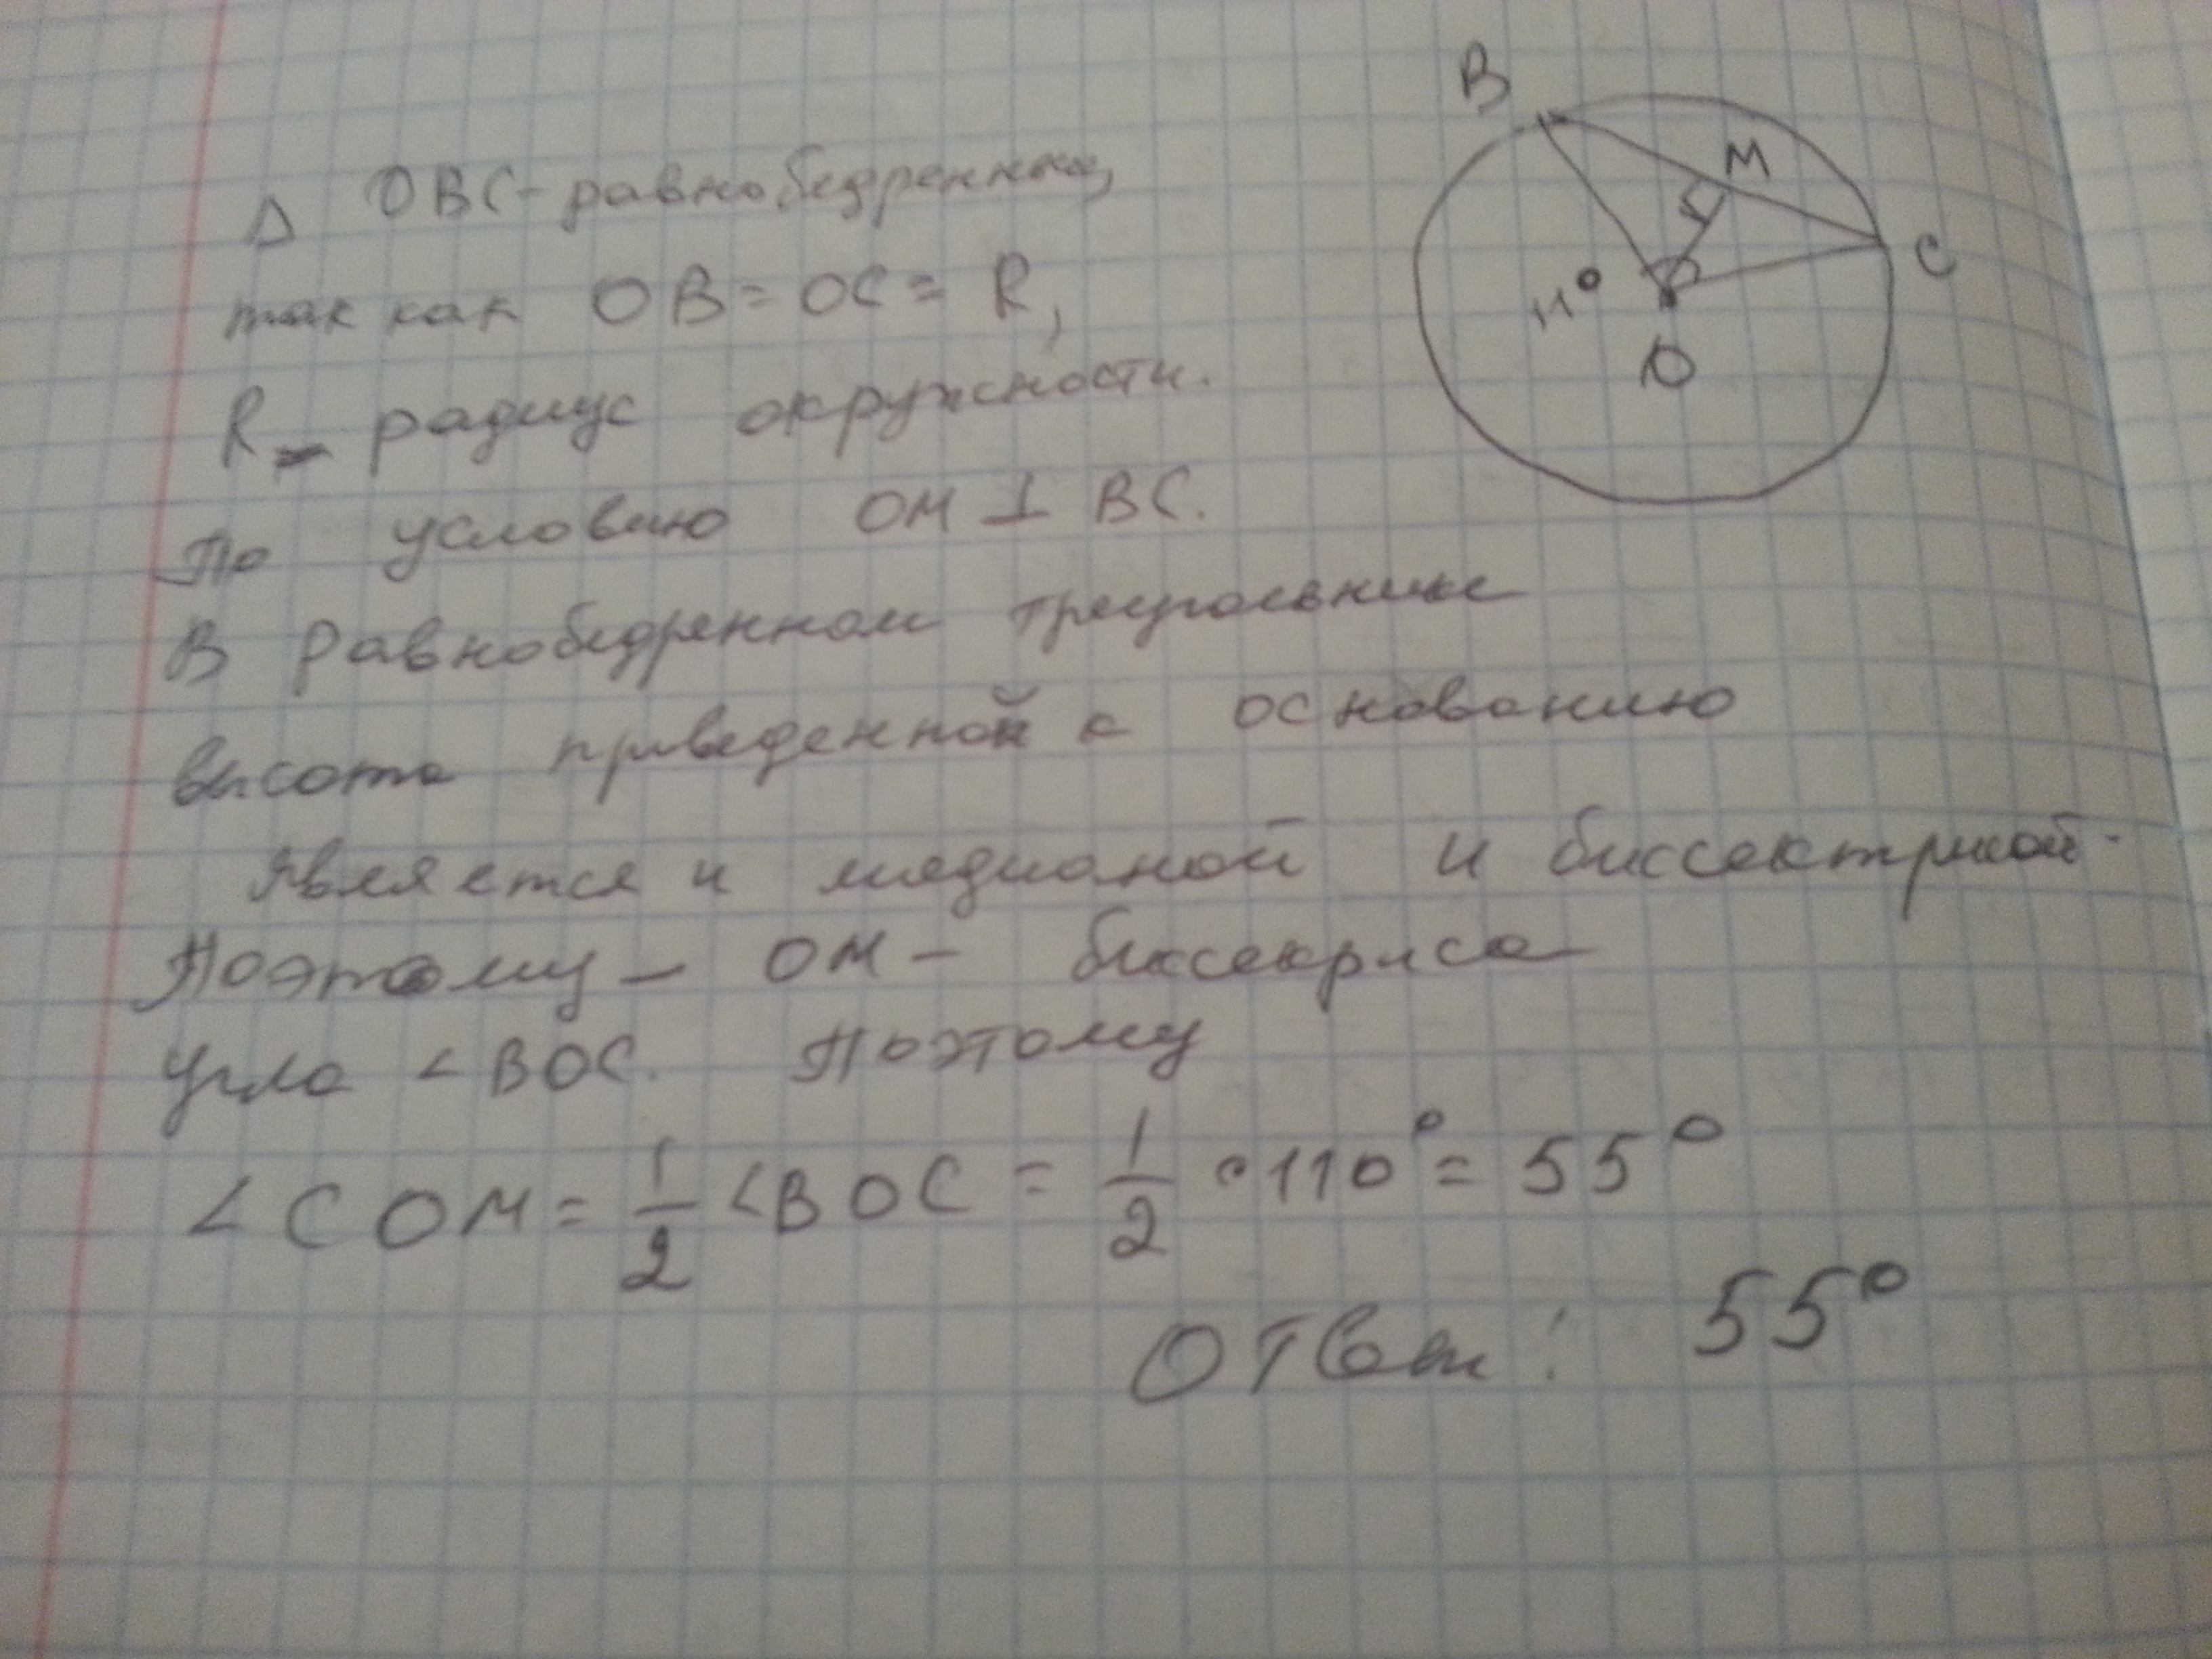 Δ OBC - равнобедренный,
так как OB = OC = R,
R - радиус окружности.
По условию OM ⊥ BC.
В равнобедренном треугольнике
высота приведенной к основанию
является и медианой и биссектрисой.
Поэтому - OM - биссекриса
угла ∠BOC. Поэтому
∠COM = 1/2 ∠BOC = 1/2 · 110° = 55°
Ответ: 55°
B
M
C
11°
O